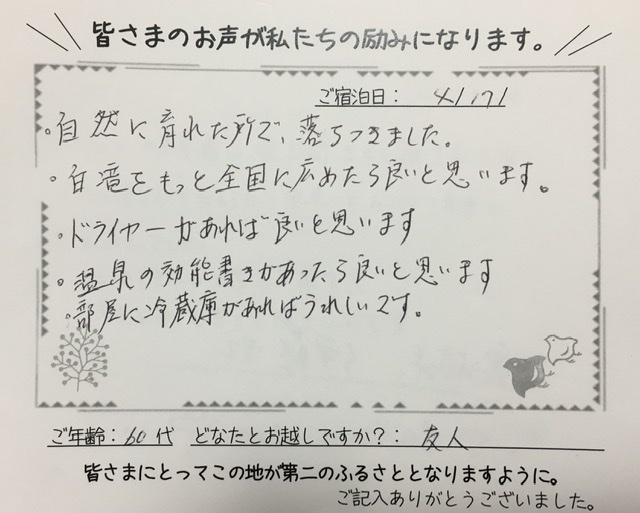 皆さまのお声が私たちの励みになります。
ご宿泊日： 4/17
・自然に育れた所で、落ちつきました。
・白滝をもっと全国に広めたら良いと思います。
・ドライヤーがあれば良いと思います
・温泉の効能書きがあったら良いと思います
・部屋に冷蔵庫があればうれしいです。
ご年齢：60代 どなたとお越しですか？： 友人
皆さまにとってこの地が第二のふるさととなりますように。
ご記入ありがとうございました。